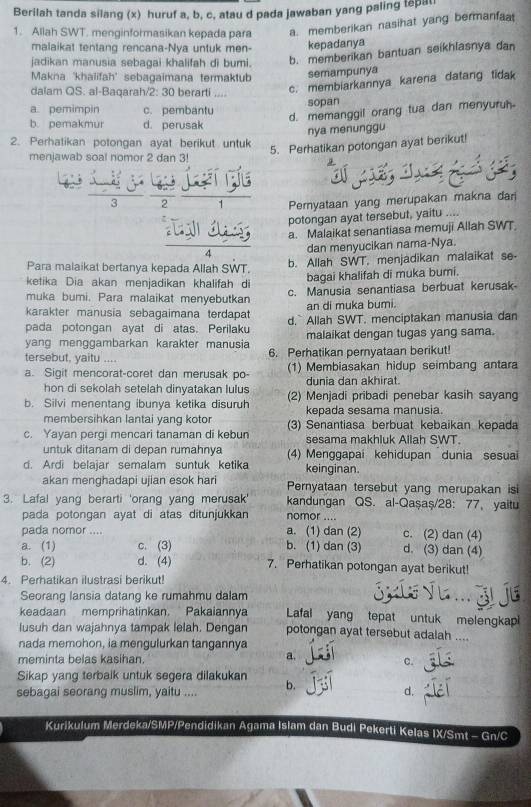 Berilah tanda silang (x) huruf a, b, c, atau d pada jawaban yang paling tepat!
1. Allah SWT. menginformasikan kepada para
malaikat tentang rencana-Nya untuk men-
jadikan manusia sebagai khalifah di bumi.
Makna 'khalifah' sebagaimana termaktub
dalam QS. al-Baqarah/2: 30 berarti ....
a. pemimpin c. pembantu
b. pemakmur d. perusak
2. Perhatikan potongan ayat berikut untuk
menjawab soal nomor 2 dan 3!
قالوا أتجعل فيها من يفسد فيها
3 2 1
ويسفك الدماء
4
Para malaikat bertanya kepada Allah SWT.
ketika Dia akan menjadikan khalifah di
muka bumi. Para malaikat menyebutkan
karakter manusia sebagaimana terdapat
pada potongan ayat di atas. Perilaku
yang menggambarkan karakter manusia
tersebut, yaitu ....
a. Sigit mencorat-coret dan merusak po-
hon di sekolah setelah dinyatakan lulus
b. Silvi menentang ibunya ketika disuruh
membersihkan lantai yang kotor
c. Yayan pergi mencari tanaman di kebun
untuk ditanam di depan rumahnya
d. Ardi belajar semalam suntuk ketika
akan menghadapi ujian esok hari
3. Lafal yang berarti 'orang yang merusak'
pada potongan ayat di atas ditunjukkan
pada nomor ....
a. (1) c. (3)
b. (2) d. (4)
4. Perhatikan ilustrasi berikut!
Seorang lansia datang ke rumahmu dalam
keadaan memprihatinkan. Pakaiannya
lusuh dan wajahnya tampak lelah. Dengan
nada memohon, ia mengulurkan tangannya
meminta belas kasihan.
Sikap yang terbaik untuk segera dilakukan
sebagai seorang muslim, yaitu ....
a. memberikan nasihat yang bermanfaat
kepadanya
b. memberikan bantuan seikhlasnya dan
semampunya
c. membiarkannya karena datang tidak
sopan
d. memanggil orang tua dan menyuruh-
nya menunggu
5. Perhatikan potongan ayat berikut!
ونحن نسبح بحمدك ونقدس لك
Pernyataan yang merupakan makna dari
potongan ayat tersebut, yaitu ....
a. Malaikat senantiasa memuji Allah SWT.
dan menyucikan nama-Nya.
b. Allah SWT. menjadikan malaikat se-
bagai khalifah di muka bumi.
c. Manusia senantiasa berbuat kerusak-
an di muka bumi.
d. Allah SWT. menciptakan manusia dan
malaikat dengan tugas yang sama.
6. Perhatikan pernyataan berikut!
(1) Membiasakan hidup seimbang antara
dunia dan akhirat.
(2) Menjadi pribadi penebar kasih sayang
kepada sesama manusia.
(3) Senantiasa berbuat kebaikan kepada
sesama makhluk Allah SWT.
(4) Menggapai kehidupan dunia sesuai
keinginan.
Pernyataan tersebut yang merupakan isi
kandungan QS. al-Qaṣaṣ/28: 77, yaitu
nomor ....
a. (1) dan (2) c. (2) dan (4)
b. (1) dan (3) d. (3) dan (4)
7. Perhatikan potongan ayat berikut!
قال إني ... ما لا تعلمون
Lafal yang tepat untuk melengkapi
potongan ayat tersebut adalah ....
a. أجعل c. خلق
b. أنزل d. أعلم
Kurikulum Merdeka/SMP/Pendidikan Agama Islam dan Budi Pekerti Kelas IX/Smt - Gn/C